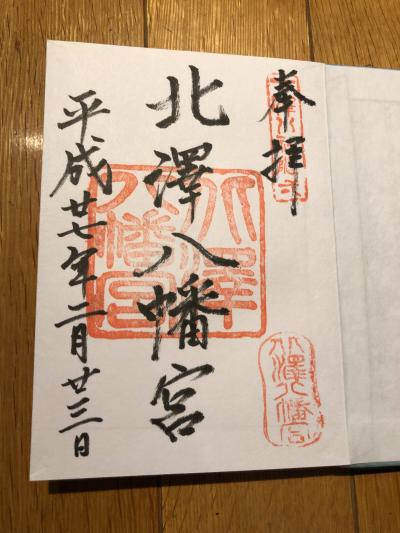 奉拝
北澤八幡宮
平成廿七年二月廿三日
北澤八幡宮
北澤八幡宮